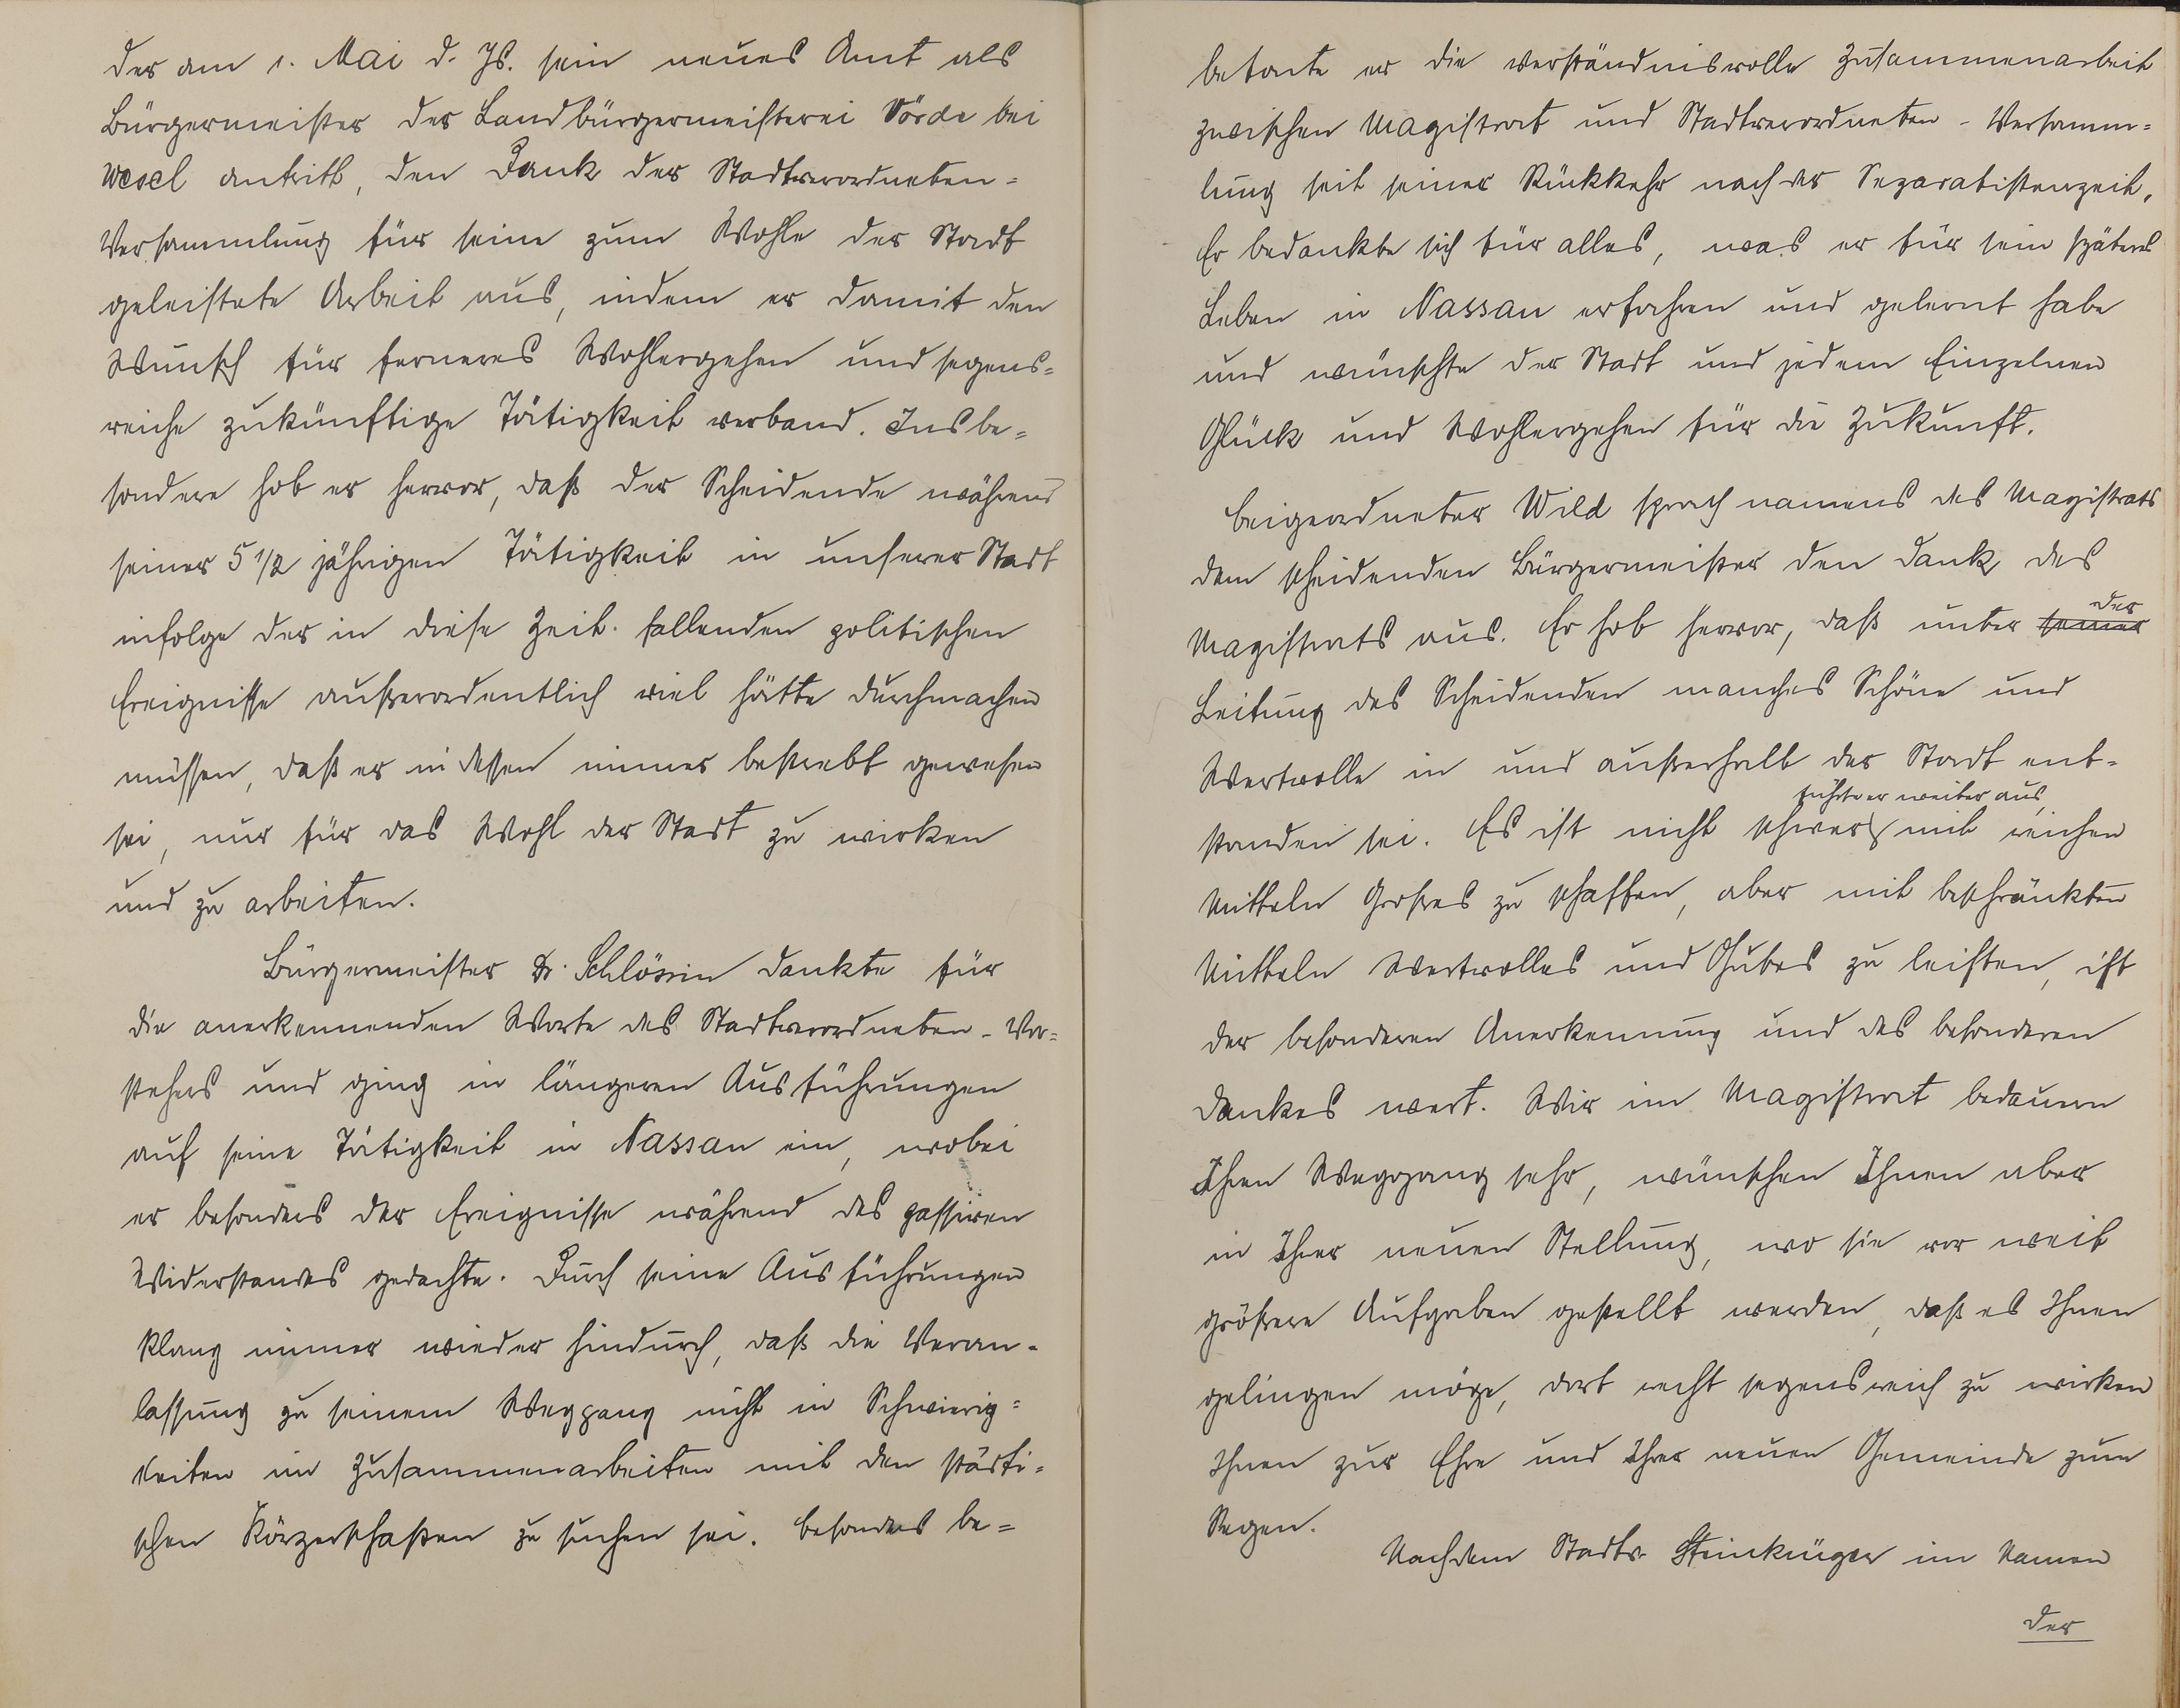 der am 1. Mai d. Js. sein neues Amt als
Bürgermeister der Landbürgermeisterei Vörde bei
Wesel antritt, den Dank der Stadtverordneten=
Versammlung für seine zum Wohle der Stadt
geleistete Arbeit aus, indem er damit den
Wunsch für ferneres Wohlergehen und segens=
reiche zukünftige Tätigkeit verband. Insbe=
sondere hob er hervor, daß der Scheidende während
seiner 5 1/2 jährigen Tätigkeit in unserer Stadt
infolge der in diese Zeit fallenden politischen
Ereignisse außerordentlich viel hätte durchmachen
müssen, daß er indessen immer bestrebt gewesen
sei, nur für das Wohl der Stadt zu wirken
und zu arbeiten.
Bürgermeister Dr. Schlössin dankte für
die anerkennenden Worte des Stadtverordneten-Vor=
stehers und ging in längeren Ausführungen
auf seine Tätigkeit in Nassau ein, wobei
er besonders der Ereignisse während des passiven
Widerstandes gedachte. Durch seine Ausführungen
klang immer wieder hindurch, daß die Veran-
lassung zu seinem Weggang nicht in Schwierig=
keiten im Zusammenarbeiten mit den städti=
schen Körperschaften zu suchen sei. Besonders be=
betonte er die verständnisvolle Zusammenarbeit
zwischen Magistrat und Stadtverordneten-Versamm=
lung seit seiner Rückkehr nach der Separatistenzeit.
Er bedankte sich für alles, was er für sein späteres
Leben in Nassau erfahren und gelernt habe
und wünschte der Stadt und jedem Einzelnen
Glück und Wohlergehen für die Zukunft.
Beigeordneter Wild sprach namens des Magistrats
dem scheidenden Bürgermeister den Dank des
Magistrats aus. Er hob hervor, daß unter seiner der
Leitung des Scheidenden manches Schöne und
Wertvolle in und außerhalb der Stadt ent-
standen sei. Es ist nicht schwer, führte er weiter aus, mit reichen
Mitteln Großes zu schaffen, aber mit beschränkten
Mitteln Wertvolles und Gutes zu leisten, ist
der besonderen Anerkennung und des besonderen
Dankes wert. Wir im Magistrat bedauern
Ihren Weggang sehr, wünschen Ihnen aber
in Ihrer neuen Stellung, wo sie vor weit
größere Aufgaben gestellt werden, daß es Ihnen
gelingen möge, dort recht segensreich zu wirken
Ihnen zur Ehre und Ihrer neuen Gemeinde zum
Segen.
Nachdem Stadtv. Steinkrüger im Namen
der